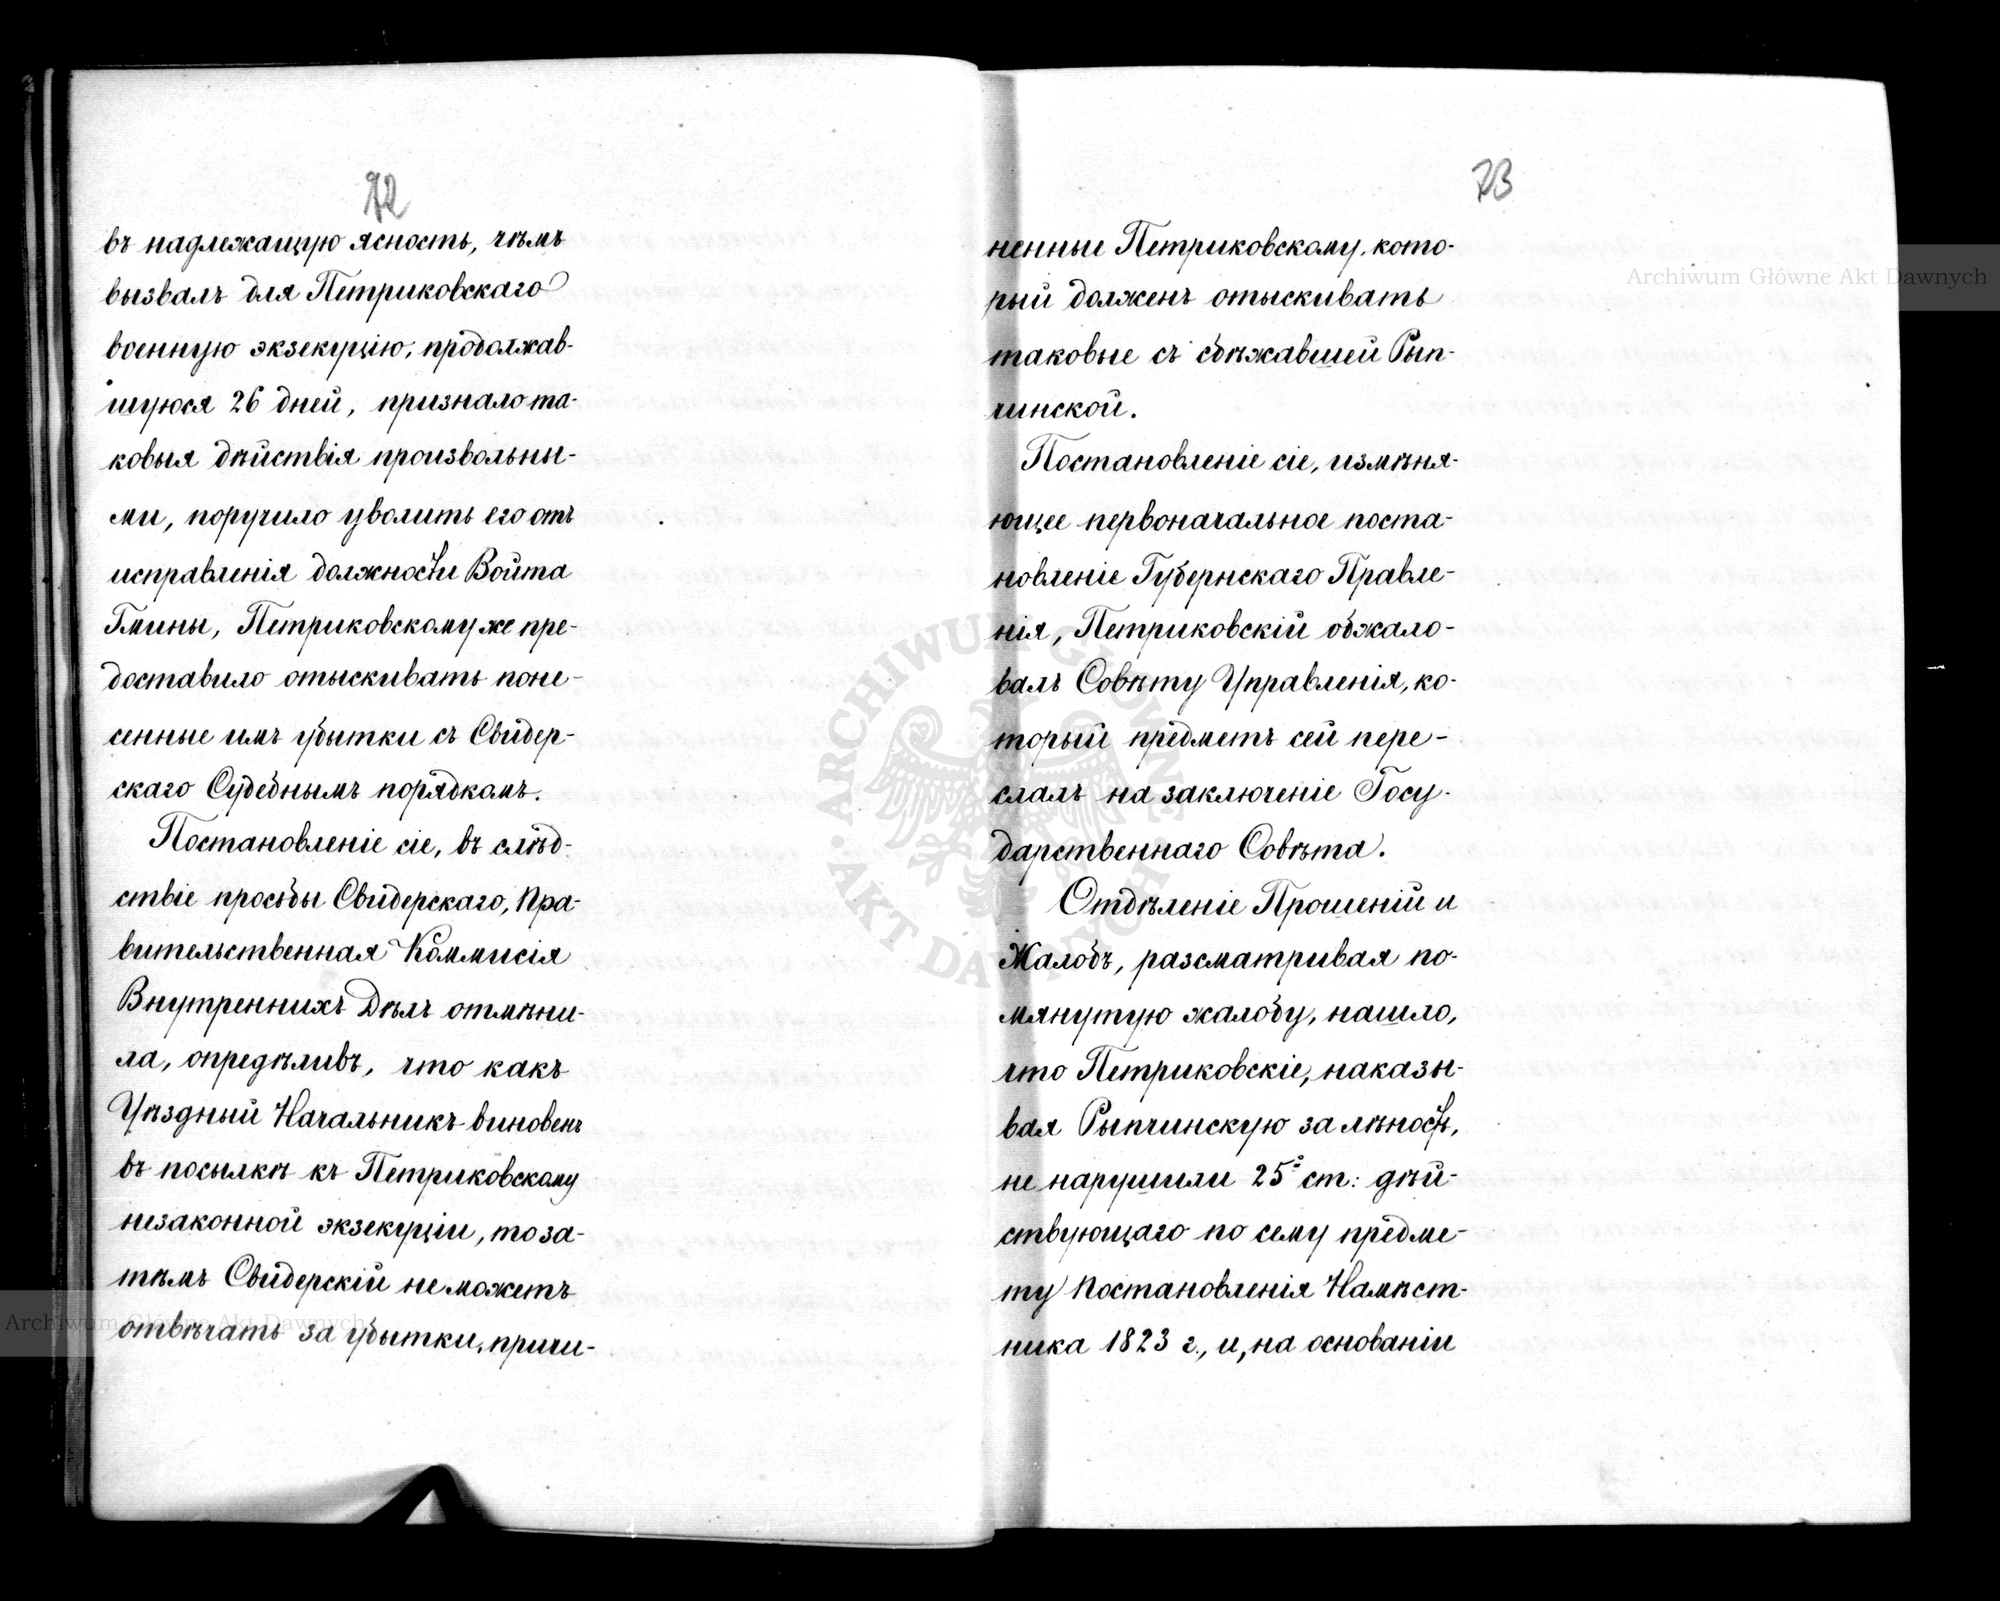 72
въ надлежащую ясность, чѣмъ
вызвалъ для Петриковскаго
военную экзекуцію, продолжав-
шуюся 26 дней, признало та-
ковыя дѣйствія произвольны-
ми, поручило уволить его отъ
исправленія должности Войта
Гмины, Петриковскому же пре-
доставило отыскивать поне-
сенные имъ убытки съ Свидер-
скаго Судебнымъ порядкомъ.
Постановленіе сіе, въ слѣд-
ствіе просьбы Свидерскаго, Пра-
вительственная Коммисія
Внутреннихъ Дѣлъ отмѣни-
ла, опредѣливъ, что какъ
Уѣздный Начальникъ виновенъ
въ посылкѣ къ Петриковскому
незаконной экзекуціи, то за-
тѣмъ Свидерскій не можетъ
отвѣчать за убытки, причи-
73
ненные Петриковскому, кото-
рый долженъ отыскивать
таковые съ сбѣжавшей Рып-
чинской.
Постановленіе сіе, измѣня-
ющее первоначальное поста-
новленіе Губернскаго Правле-
нія, Петриковскій обжало-
валъ Совѣту Управленія, ко-
торый предметъ сей пере-
слалъ на заключеніе Госу-
дарственнаго Совѣта.
Отдѣленіе Прошеній и
Жалобъ, разсматривая по-
мянутую жалобу, нашло,
что Петриковскіе, наказы-
вая Рыпчинскую за лѣность,
не нарушили 25й ст: дѣй-
ствующаго по сему предме-
ту Постановленія Намѣст-
ника 1823 г., и, на основаніи
Archiwum Główne Akt Dawnych
Archiwum Główne Akt Dawnych
ARCHIWUM GŁÓWNE AKT DAWNYCH